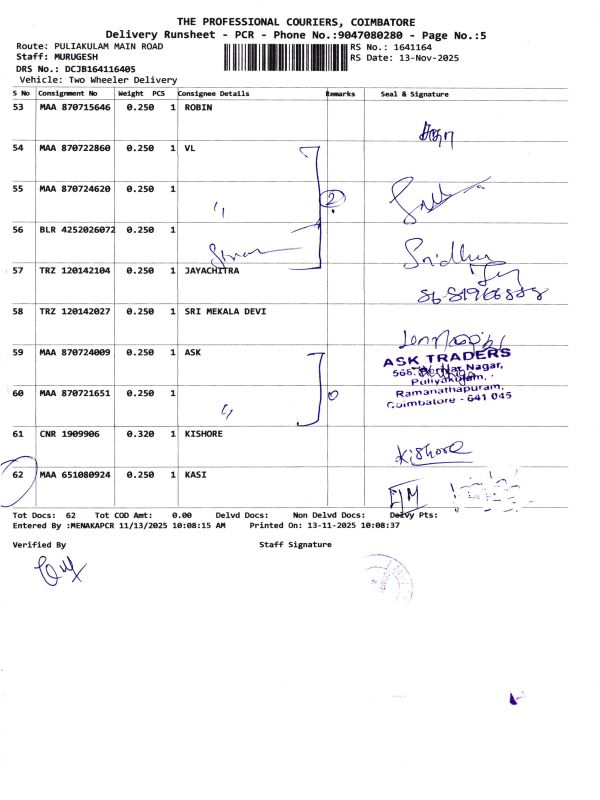 THE PROFESSIONAL COURIERS, COIMBATORE
Delivery Runsheet - PCR - Phone No.:9047080280 - Page No.:5
Route: PULIAKULAM MAIN ROAD RS No.: 1641164
Staff: MURUGESH RS Date: 13-Nov-2025
DRS No.: DCJB164116405
Vehicle: Two Wheeler Delivery
S No Consignment No Weight PCS Consignee Details Remarks Seal & Signature
53 MAA 870715646 0.250 1 ROBIN
54 MAA 870722860 0.250 1 VL
55 MAA 870724620 0.250 1 2
56 BLR 4252026072 0.250 1
Sridhar
57 TRZ 120142104 0.250 1 JAYACHITRA
58 TRZ 120142027 0.250 1 SRI MEKALA DEVI
59 MAA 870724009 0.250 1 ASK
ASK TRADERS
Nagar,
Puliyakulam,
60 MAA 870721651 0.250 1
Ramanathapuram,
Coimbatore - 641 045
61 CNR 1909906 0.320 1 KISHORE
Kishore
62 MAA 651080924 0.250 1 KASI
Tot Docs: 62 Tot COD Amt: 0.00 Delvd Docs: Non Delvd Docs: Delvy Pts:
Entered By :MENAKAPCR 11/13/2025 10:08:15 AM Printed On: 13-11-2025 10:08:37
Verified By Staff Signature